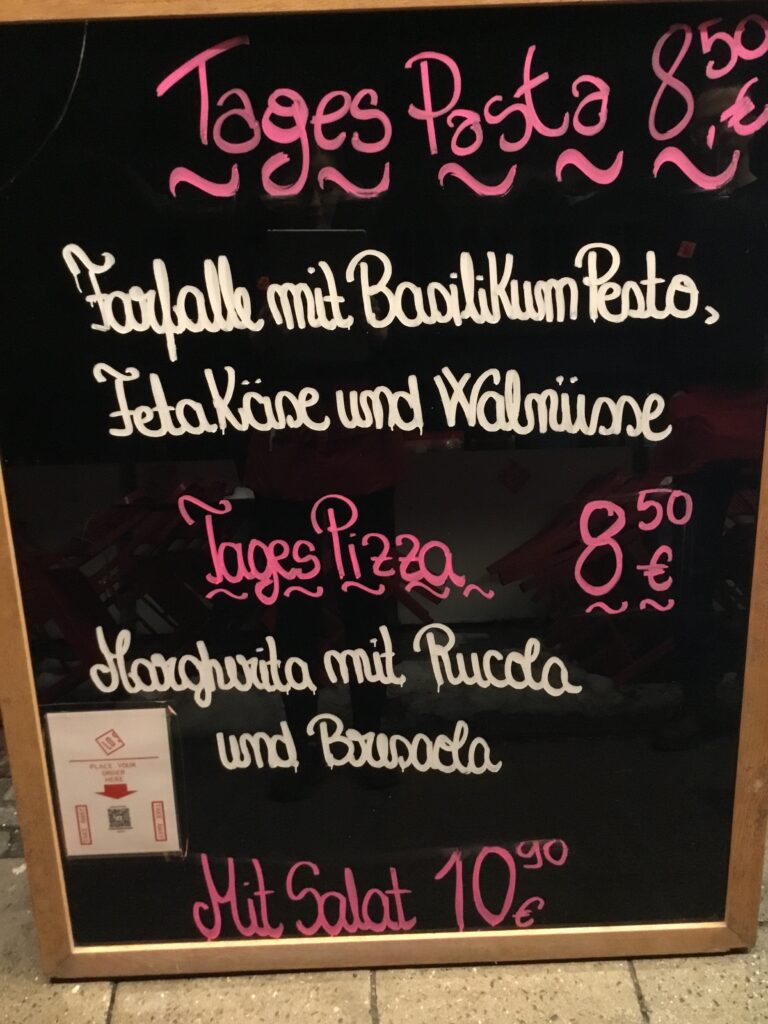 Tages Pasta 8,50 €
Farfalle mit Basilikum Pesto,
Feta Käse und Walnüsse
Tages Pizza 8 50 €
Margherita mit Rucola
und Bresaola
PLACE YOUR
ORDER
HERE
Mit Salat 10 90 €